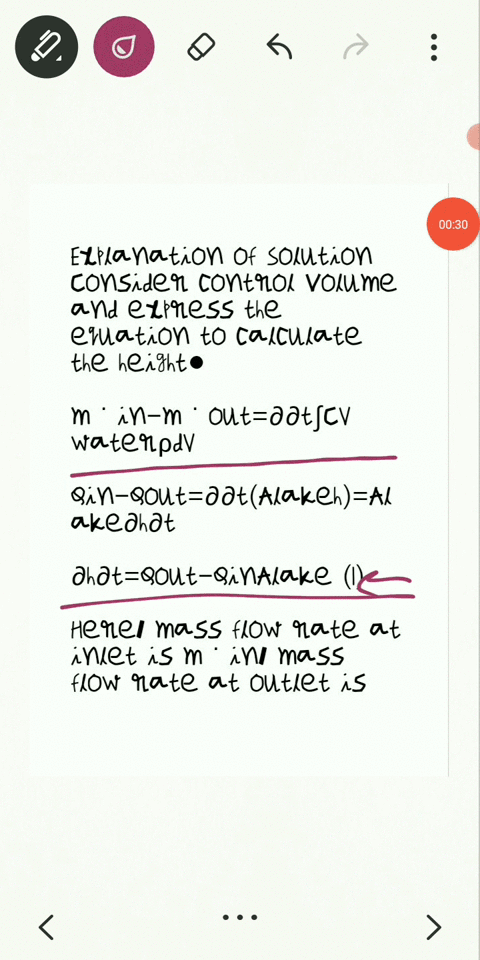 00:30
Explanation of solution
consider control volume
and express the
equation to calculate
the height●
m ˙ in-m ˙ out=∂∂t∫CV
waterρdV
Qin-Qout=∂∂t(Alakeh)=Al
ake∂h∂t
∂h∂t=Qout-QinAlake (1)
Here/ mass flow rate at
inlet is m ˙ in/ mass
flow rate at outlet is